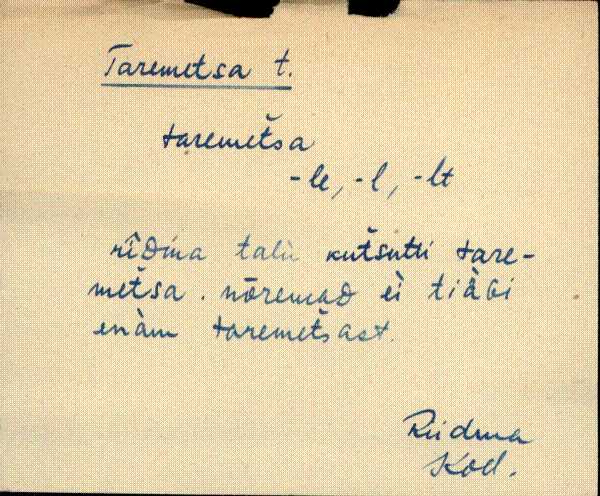 Taremetsa t.
taremetša
-le, -l, -lt
rîdma talu kutšutti tare-
metša. nõremaD ei tiäBi
enàm taremetšast.
Riidma
Kod.